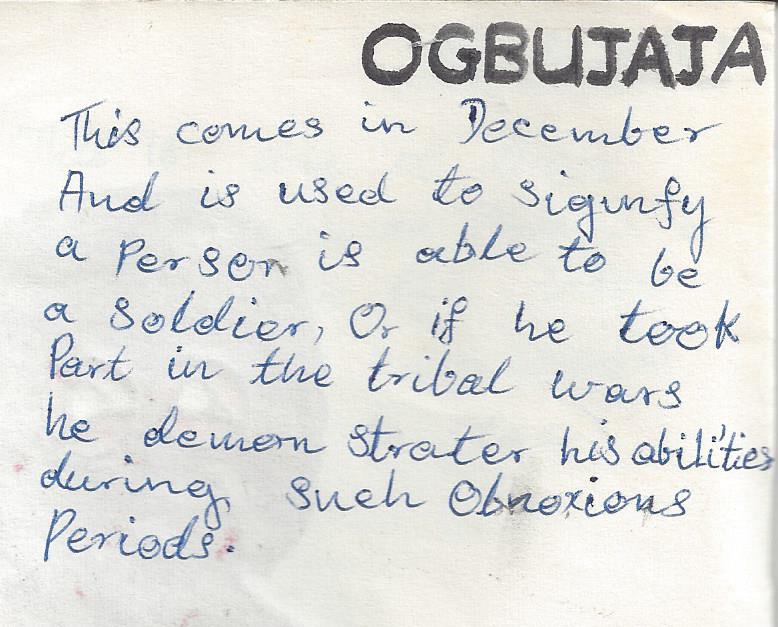 OGBUJAJA
This comes in December
And is used to signify
a Person is able to be
a Soldier, Or if he took
Part in the tribal wars
he demon strater his abilities
during such Obnoxious
Periods.